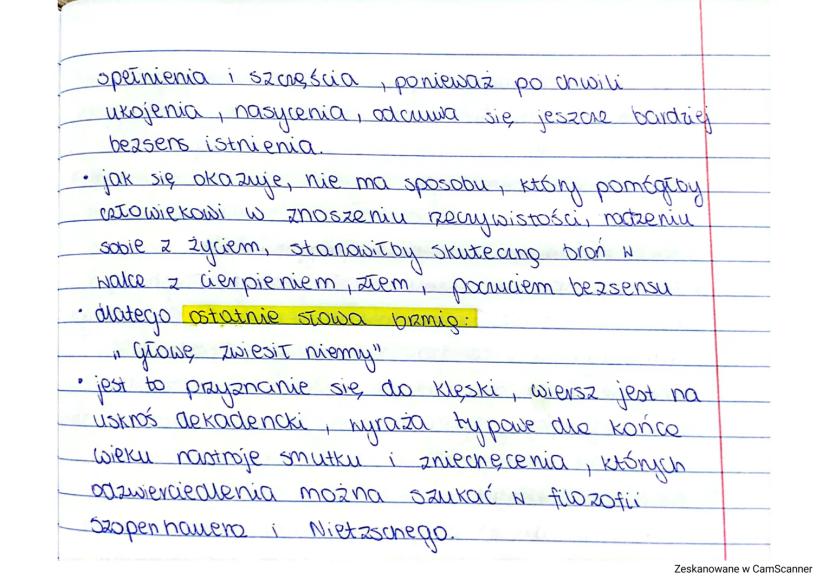 spełnienia i szczęścia, ponieważ po chwili
ukojenia, nasycenia, odczuwa się jeszcze bardziej
bezsens istnienia.
• jak się okazuje, nie ma sposobu, który pomógłby
człowiekowi w znoszeniu rzeczywistości, radzeniu
sobie z życiem, stanowiłby skuteczną broń w
walce z cierpieniem, złem, poczuciem bezsensu
• dlatego ostatnie słowa brzmią:
„Głowę zwiesił niemy"
• jest to przyznanie się do klęski, wiersz jest na
wskroś dekadencki, wyraża typowe dla końca
wieku nastroje smutku i zniechęcenia, których
odzwierciedlenia można szukać w filozofii
Szopenhauera i Nietzschego.
Zeskanowane w CamScanner